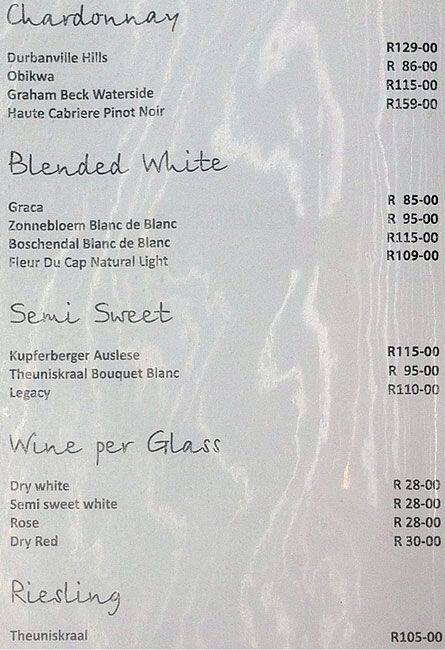 Chardonnay
Durbanville Hills R129-00
Obikwa R 86-00
Graham Beck Waterside R115-00
Haute Cabriere Pinot Noir R159-00
Blended White
Graca R 85-00
Zonnebloem Blanc de Blanc R 95-00
Boschendal Blanc de Blanc R115-00
Fleur Du Cap Natural Light R109-00
Semi Sweet
Kupferberger Auslese R115-00
Theuniskraal Bouquet Blanc R 95-00
Legacy R110-00
Wine per Glass
Dry white R 28-00
Semi sweet white R 28-00
Rose R 28-00
Dry Red R 30-00
Riesling
Theuniskraal R105-00